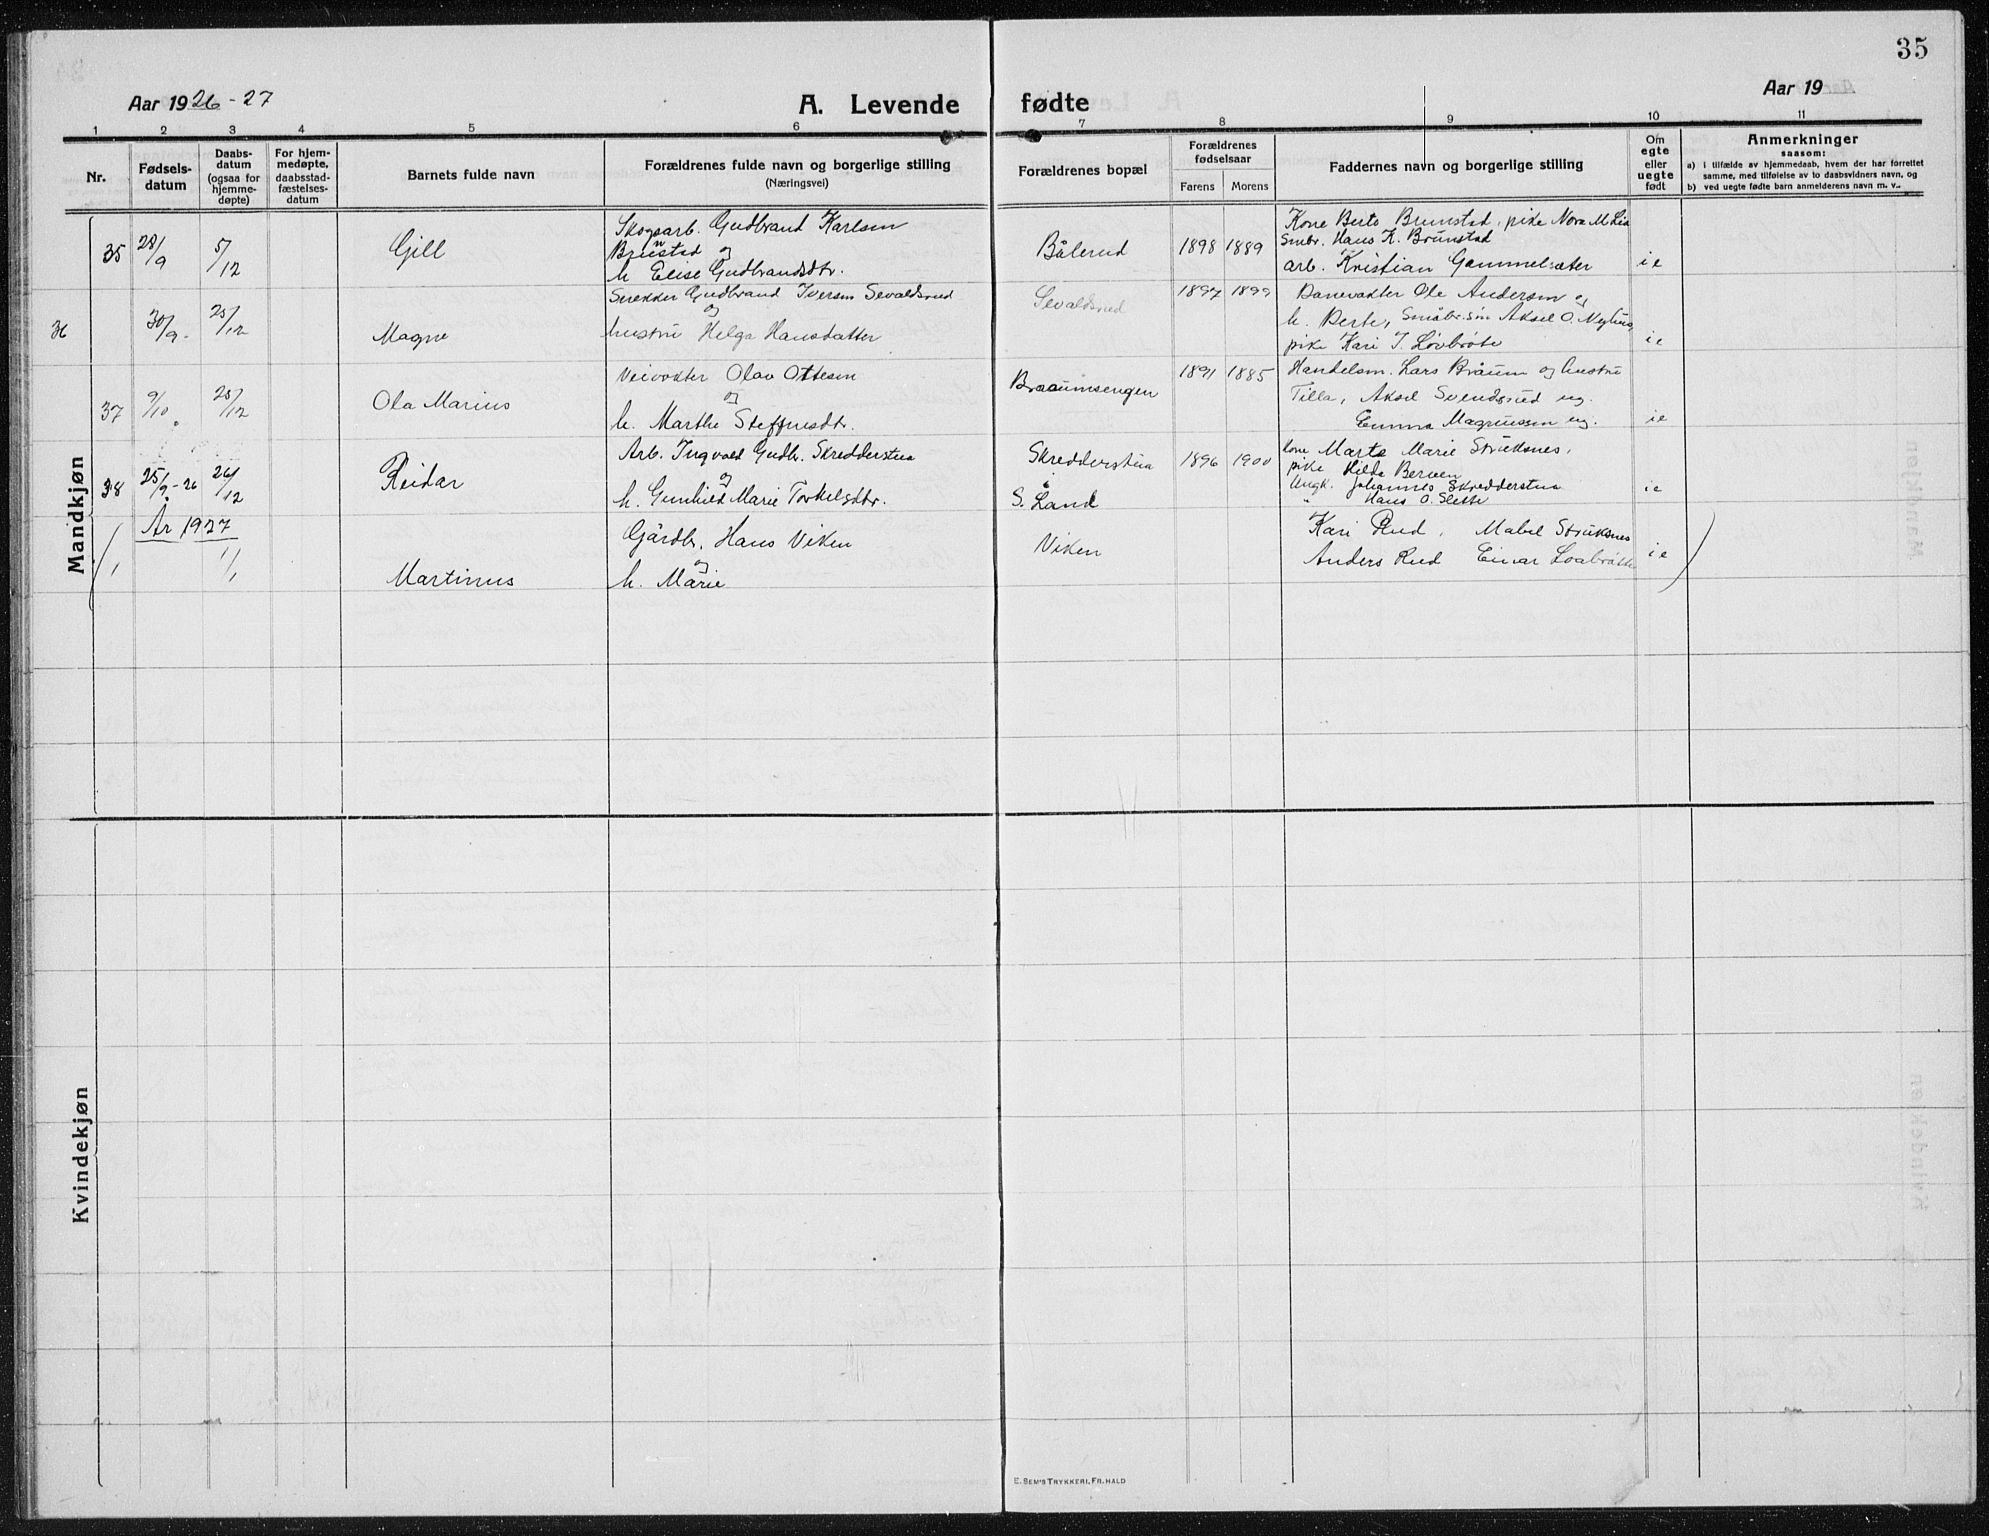 35
Aar 1926-27
A. Levende fødte
Aar 19
1 2 3 4 5 6 7 8 9 10 11
Nr.
Fødsels-
datum
Daabs-
datum
(ogsaa for
hjemme-
døpte)
For hjem-
medøpte,
daabsstad-
fæstelses-
datum
Barnets fulde navn
Forældrenes fulde navn og borgerlige stilling
(Næringsvei)
Forældrenes bopæl
Forældrenes
fødselsaar
Farens Morens
Faddernes navn og borgerlige stilling
Om
egte
eller
uegte
født
Anmerkninger
saasom:
a) i tilfælde av hjemmedaab, hvem der har forrettet
samme, med tilføielse av to daabsvidners navn, og
b) ved uegte fødte barn anmelderens navn m. v..
Mandkjøn
35 28/9 5/12 Gjll
Skogsarb. Gudbrand Karlsen
Brunstad og
h. Elise Gudbrandsdtr.
Bålerud 1898 1889
Kone Berte Brunstad, pike Nora M. Lia
Smbr. Hans K. Brunstad
arb. Kristian Gammelsæter
i e
36 30/9. 25/12 Magne
Snekker Gudbrand Iversen Sevaldsrud
og
hustru Helga Hansdatter
Sevaldsrud 1897 1899
Banevokter Ole Andersen og
h. Berte, Småbr.søn Aksel O.
pike Kari J. Løvbrøte
i e
37 9/10. 25/12 Ola Marius
Veivokter Olav Ottesen
og
h. Marthe Steffensdtr.
Braaumsengen 1891 1885
Handelsm. Lars Bråum og hustru
Tilla, Aksel Svendsrud ug.
Emma Magnussen ug.
i e
38 25/9-26 26/12 Reidar
Arb. Ingvald Gudbr. Skredderstua
og
h. Gunhild Marie Torkelsdtr.
Skredderstua
S. Land
1896 1900
kone Marte Marie Struksnes,
pike Hilda Berven
Ungk. Johannes Skredderstua
" Hans O. Sletta
i e
År 1927
1/1 Martinus
Gårdbr. Hans Viken
og
h. Marie
Viken
Kari Rud, Mabel Struksnes
Anders Rud Einar Loabråtte
i e
Kvindekjøn
E. SEM'S TRYKKERI, FR. HALD